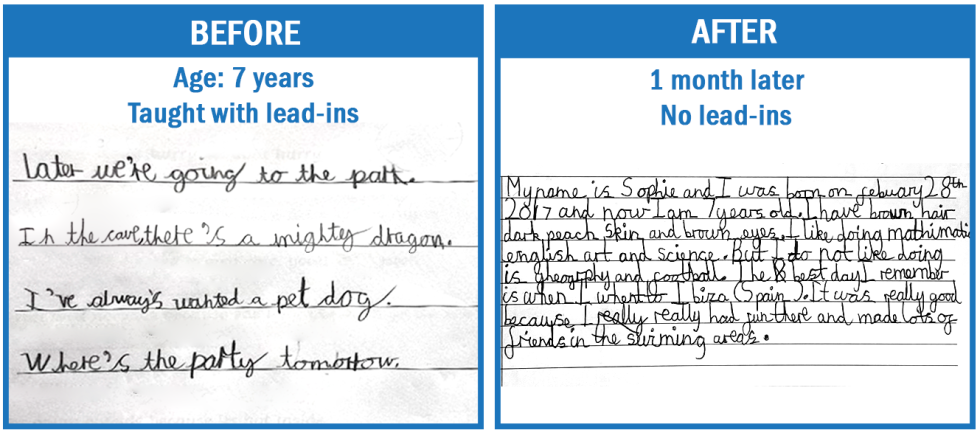 BEFORE
Age: 7 years
Taught with lead-ins
Later we're going to the park.
In the cave, there's a mighty dragon.
I've always wanted a pet dog.
Where's the party tomorrow.
AFTER
1 month later
No lead-ins
My name is Sophie and I was born on febuary 28th
2017 and now I am 7 years old. I have brown hair
dark peach skin and brown eyes. I like doing mathimatic
english art and science. But I do not like doing
is gheorphy and football. The 8 best day I remember
is when I whent to Ibiza (Spain). It was really good
becauyse I really really had fun there and made lots of
friends in the swirming areas.